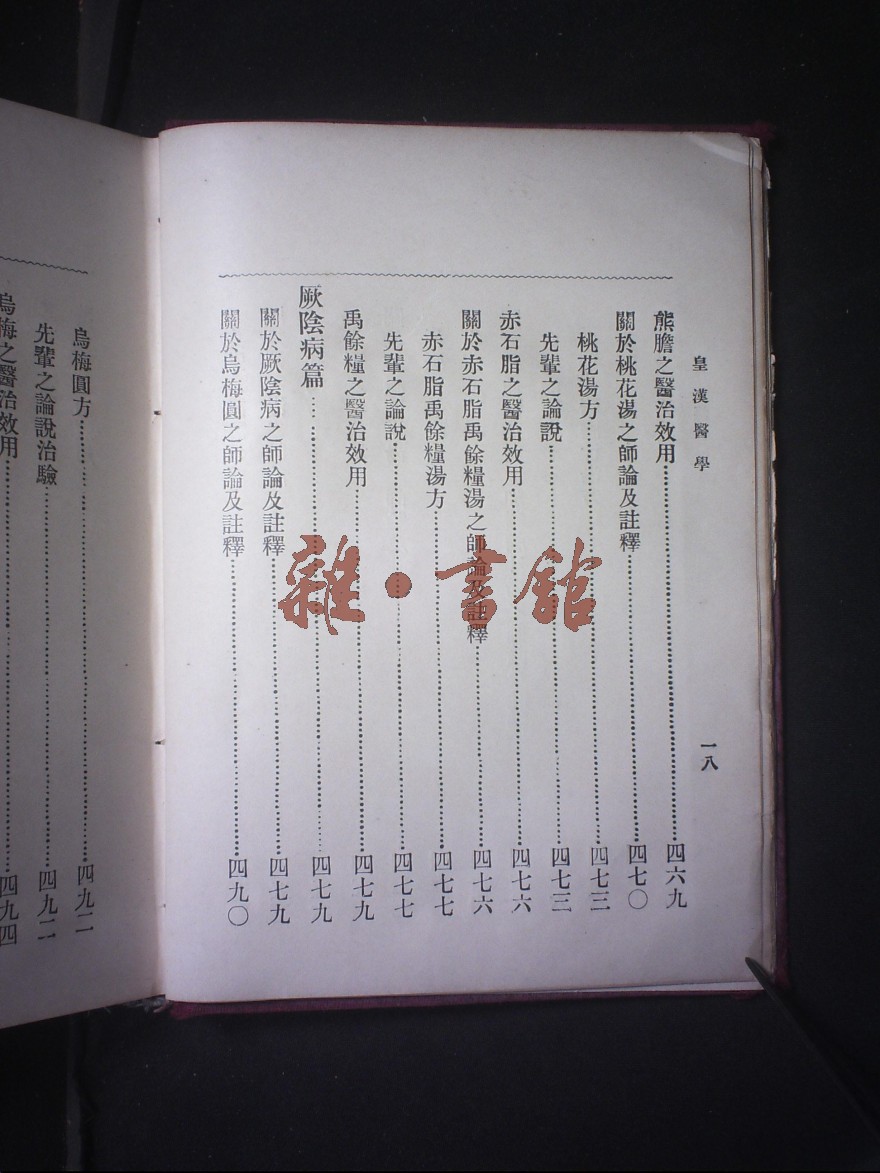 皇漢醫學
一八
熊膽之醫治效用……四六九
關於桃花湯之師論及註釋……四七〇
桃花湯方……四七三
先輩之論說……四七三
赤石脂之醫治效用……四七六
關於赤石脂禹餘糧湯之師論及註釋……四七六
赤石脂禹餘糧湯方……四七七
先輩之論說……四七七
禹餘糧之醫治效用……四七九
厥陰病篇……四七九
關於厥陰病之師論及註釋……四七九
關於烏梅圓之師論及註釋……四九〇
烏梅圓方……四九二
先輩之論說治驗……四九二
烏梅之醫治效用……四九四
雜·書館